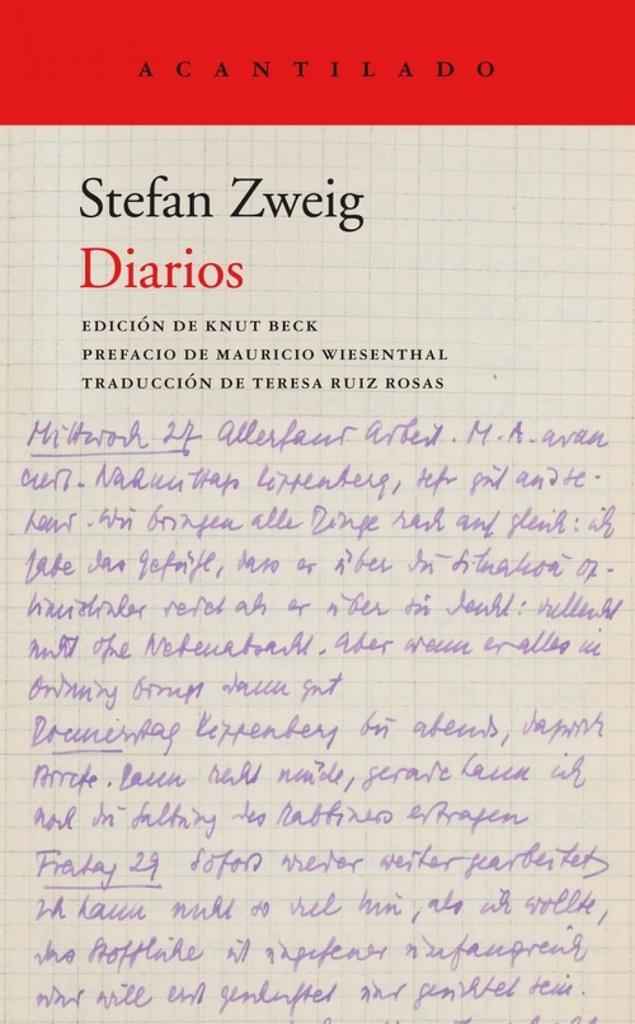 ACANTILADO
Stefan Zweig
Diarios
EDICIÓN DE KNUT BECK
PREFACIO DE MAURICIO WIESENTHAL
TRADUCCIÓN DE TERESA RUIZ ROSAS
Mittwoch 27 Allerhand Arbeit. M. A. avan
ciert. Nachmittags Kippenberg, sehr gut
wir bringen alle Dinge rasch auf gleich: ich
habe das Gefühl, dass er über die Situation op-
timistischer redet als er über sie denkt: vielleicht
nicht ohne Nebenabsicht. Aber wenn er alles in
Ordnung bringt dann gut
Donnerstag Kippenberg bis abends, dazwisch
Briefe. Dann recht müde, gerade kann ich
noch die Salbung des Rabbiners ertragen
Freitag 29 Sofort wieder weiter gearbeitet,
ich kann nicht so viel tun, als ich wollte,
das Stoffliche ist ungeheuer umfangreich
und will erst gesichtet sein.